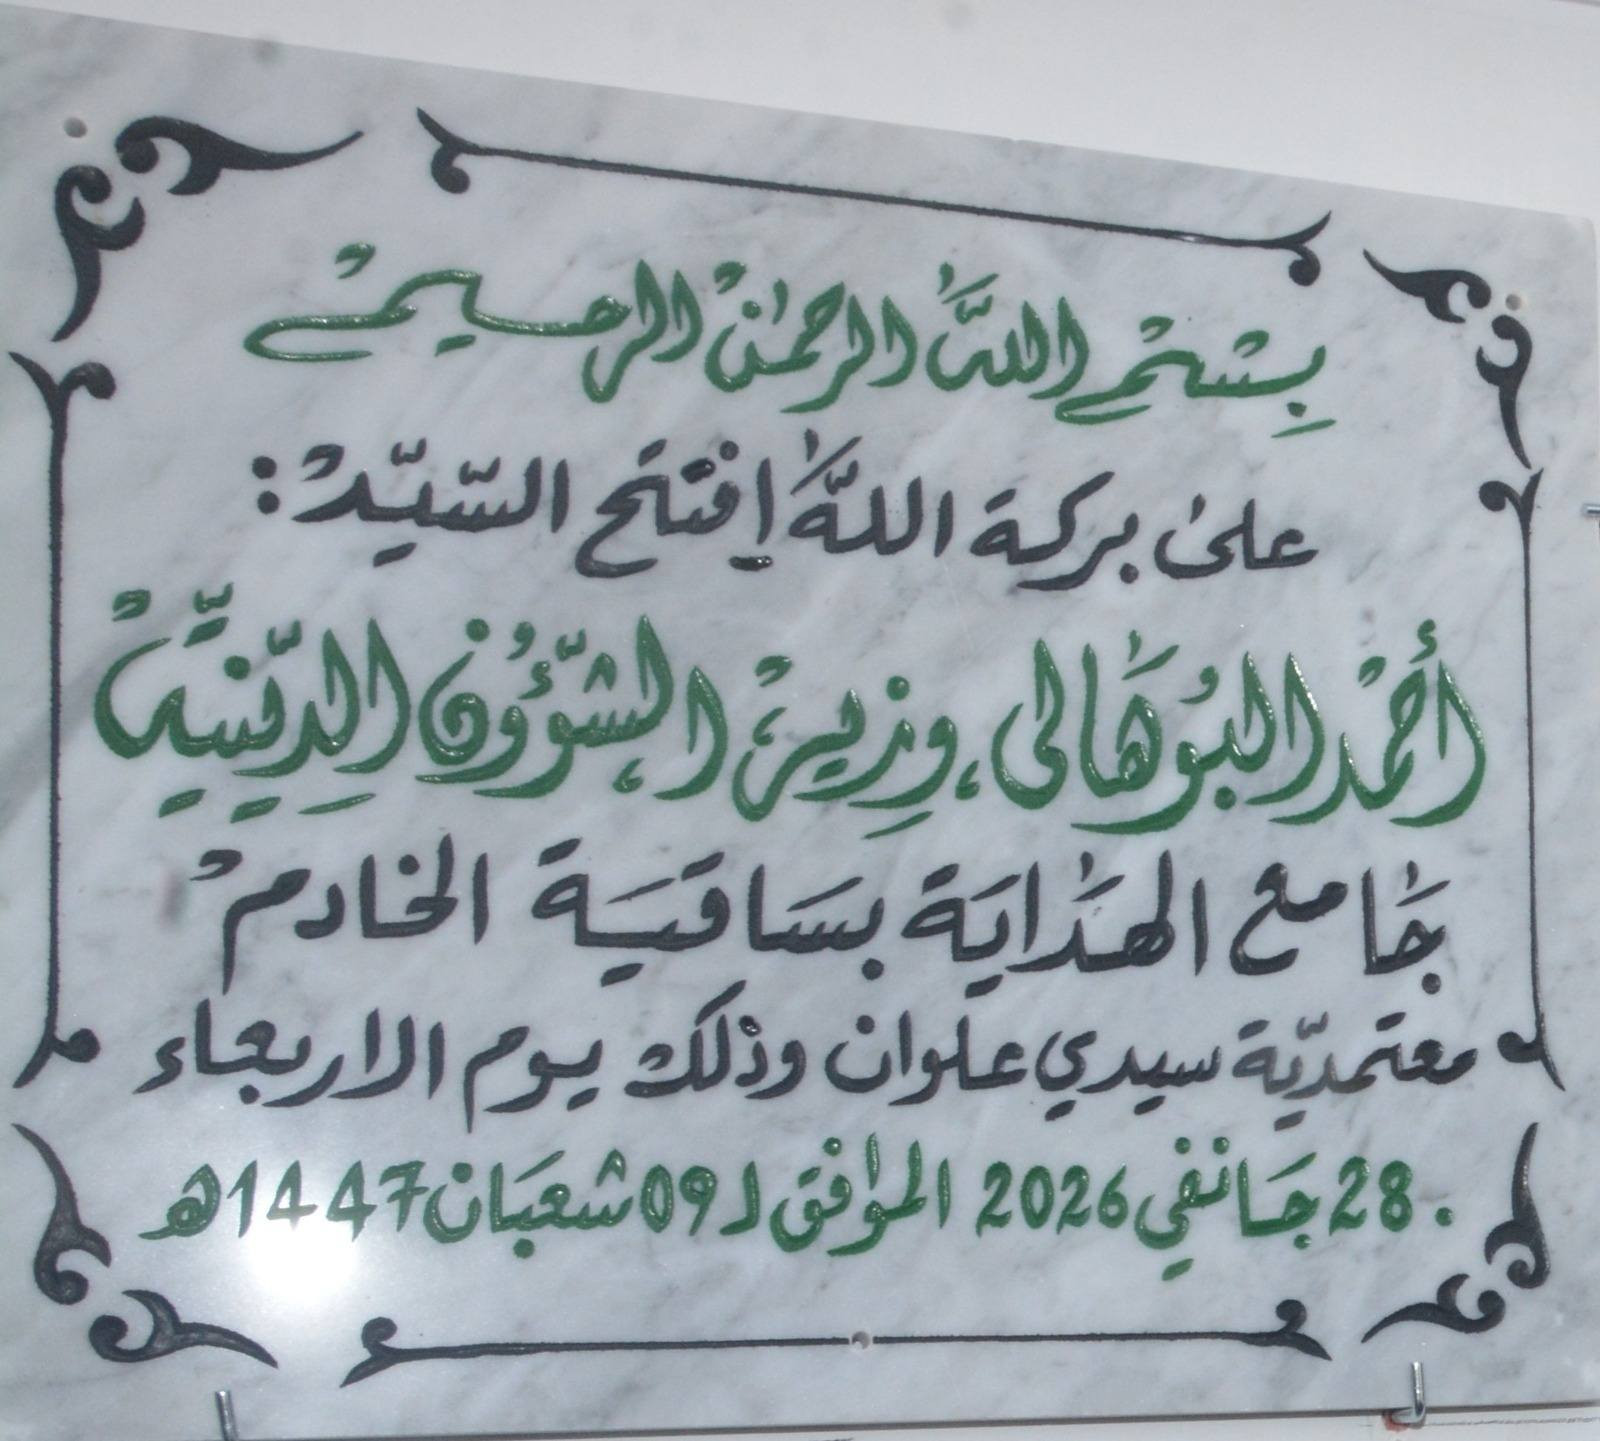 بِسْمِ اللَّهِ الرَّحْمٰنِ الرَّحِيمِ
على بركة اللَّه إفتتح السّيّد :
أحمد البُوهَالي، وزِير الشّؤُون الدِّينيّة
جَامع الهدَايَة بسَاقيَة الخادم
معتمديّة سيدي علوان وذلك يوم الاربعاء
28 جَانفي 2026 الموَافق لـ 09 شعبَان 1447هـ